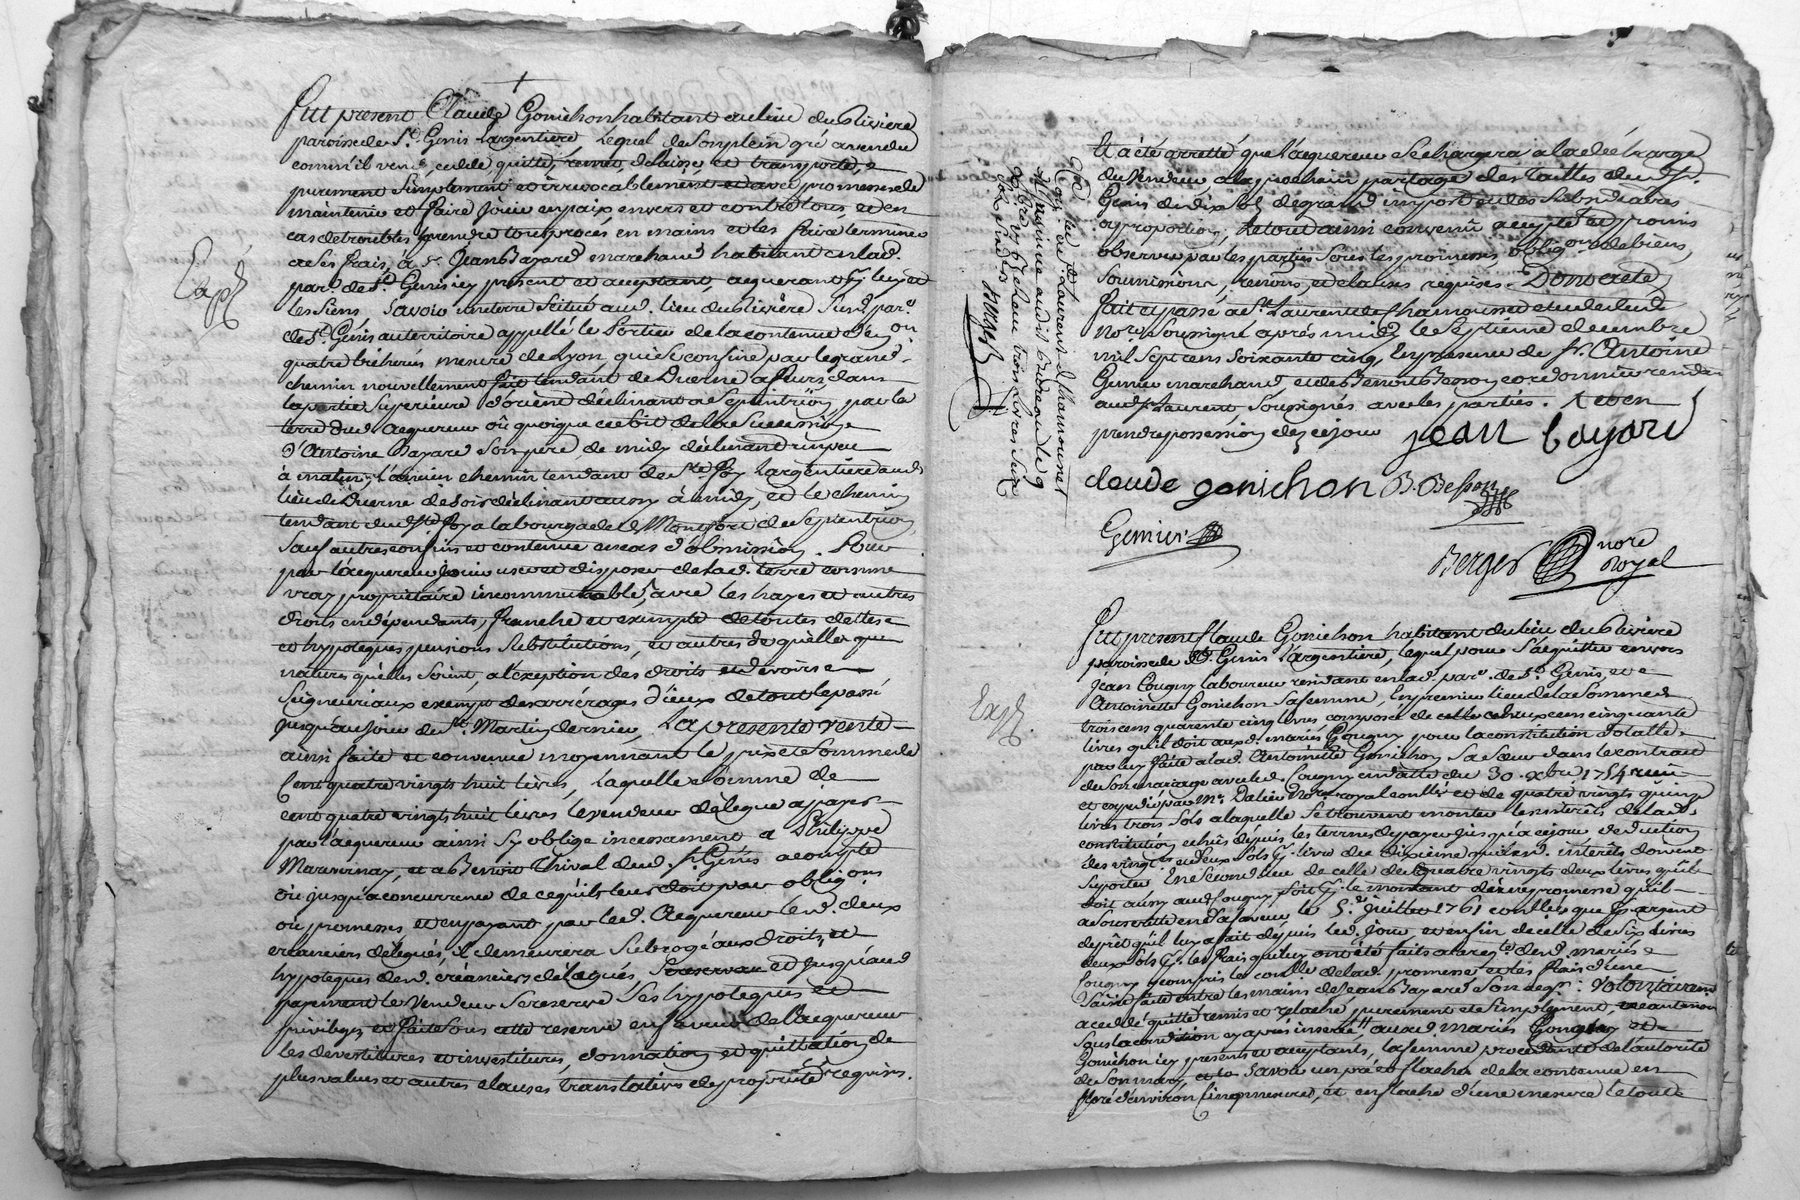 fut present Claude Gonichon habitant au lieu du Riviere
paroisse de St. Genis L'argentiere, lequel de son plein gré a vendu
comm'il vend, cedde, quitte, remet, delaisse, et transporte,
purement simplement et irrevocablement et avec promesses de
maintenir et faire jouir en paix envers et contre tous, et en
cas de troubles, prendre tous procés en mains et les faire terminer
a ses frais, à Sr. Jean Bayard marchand habitant en lad.
par. de St. Genis icy present et acceptant, acquerant pr. luy et
les siens, savoir une terre scitué aud. lieu du Riviere sud. par.
de St. Génis au territoire appellé le Portier de la contenue d'en on
quatre bicherés mesure de Lyon, qui se confine par le grand
chemin nouvellement fait tendant de Duerne a fleurs dans
la partie superieure d'orient declinant a septentrion, par la
terre dud. acquereur où quoique ce soit de la succession
d'Antoine Bayard son pere de midy declinant un peu
à matin, l'ancien chemin tendant de Ste. foy L'argentiere aud.
lieu de Duerne de soir declinant aussy à midy, et le chemin
tendant dud. Ste. foy a la bourgade de Montfort de septentrion,
sauf autres confins et contenue en cas d'obmission. Pour
par l'acquereur jouir user et disposer de lad. terre comme
vray proprietaire incommutable, avec les hayes et autres
droits en dépendants, franche et exempte de toutes dettes
et hypoteques pensions substitutions, et autres de quelle que
natures quelles soient, a l'exeption des droits et devoirs
seigneuriaux exempt des arrérages d'iceux de tout le passé
jusqu'au jour de St. Martin dernier. La presente vente
ainsi faite et convenue moyennant le prix et somme de
Cent quatre vingts huit livres, laquelle somme de
cent quatre vingts huit livres le vendeur délegue a payer
par l'acquereur ainsi s'y oblige incessamment a Philippe
et a Benoit Thival dud. St. Génis acompte
où jusqu'a concurrence de ce qu'il leur doit par obligons
ou promesses et en payant par led. acquereur lesd. deux
creanciers délegués, il demeurera subrogé aux droits, et
hypoteques desd. créanciers délegués, et jusqu'aud
payement le vendeur se reserve ses hypoteques et
privileges, et faite sous cette reserve en faveur de l'acquereur
les devestitures et investitures, donnation et quittation de
plus values et autres clauses translatives de proprieté requises.
Et a été arretté que l'acquereur se chargera a la décharge
du vendeur, au prochain partage des tailles dud. St.
Genis de dix sols de grand import et des subsidiaires
a proportion, le tout ainsi convenu accepté et promis
observer par les parties sous les promesses obligons de biens,
soumissions, renons, et clauses requises. Dont acte
fait et passé a St. Laurent de Chamousset etude dud.
Nore. soussigné après midy le septieme decembre
mil sept cens soixante cinq, en presence de Sr. Antoine
Gemier marchand, et de sr Benoit Besson cordonnier resident
aud. St Laurent, soussignés avec les parties. et en
prendre possession dez ce jour
jean bayard
claude gonichon B. Besson
Gemier
Berger nore Royal
Expd.
fut present Claude Gonichon habitant du lieu du Riviere
paroisse de St. Genis L'argentiere, lequel pour s'acquitter envers
jean Cougny laboureur residant en lad. par. de St. Genis, et
Antoinette Gonichon sa femme, En premier lieu de la somme de
trois cens quarente cinq livres composée de celle de deux cens cinquante
livres qu'il doit auxd. mariés Cougny pour la constitution dotalle
par luy faite a lad. Antoinette Gonichon sa soeur dans le contrat
de son mariage avec led. Cougny en datte du 30. xbre 1754 reçu
et expedié par Me. Dalier Nore royal controllé et de quatre vingts quinze
livres trois sols a laquelle se trouvent monter les interets de lad.
constitution echus depuis les termes de payer jusqu'a ce jour deduction
des vingt et deux sols pr. livre du dixieme que lesd. interets doivent
suporter, En second lieu de celle de quatre vingts deux livres qu'il
doit aussy aud. Cougny pr. le montant de la promesse qu'il
a souscritte en sa faveur le 5e. juillet 1761 controllée que pr. argent
de prêt qu'il luy a fait depuis led. jour et enfin de celle de six livres
deux sols pr. les frais qui luy ont été faits a la reqte. desd. mariés
Cougny y compris le conlle. de lad. promesse et les frais d'une
saisie faite entre les mains de Jean Bayard son deb.: Volontairemt.
a ceddé quitté remis et relaché purement et simplement,
sous la condition cy après inserée, auxd. mariés Cougny et
Gonichon icy presents et acceptants, la femme procedante de l'autorité
de son mary, savoir un pré et flacha de la contenue en
pré d'environ cinq mesures, et en flacha d'une mesure le tout
Expd.